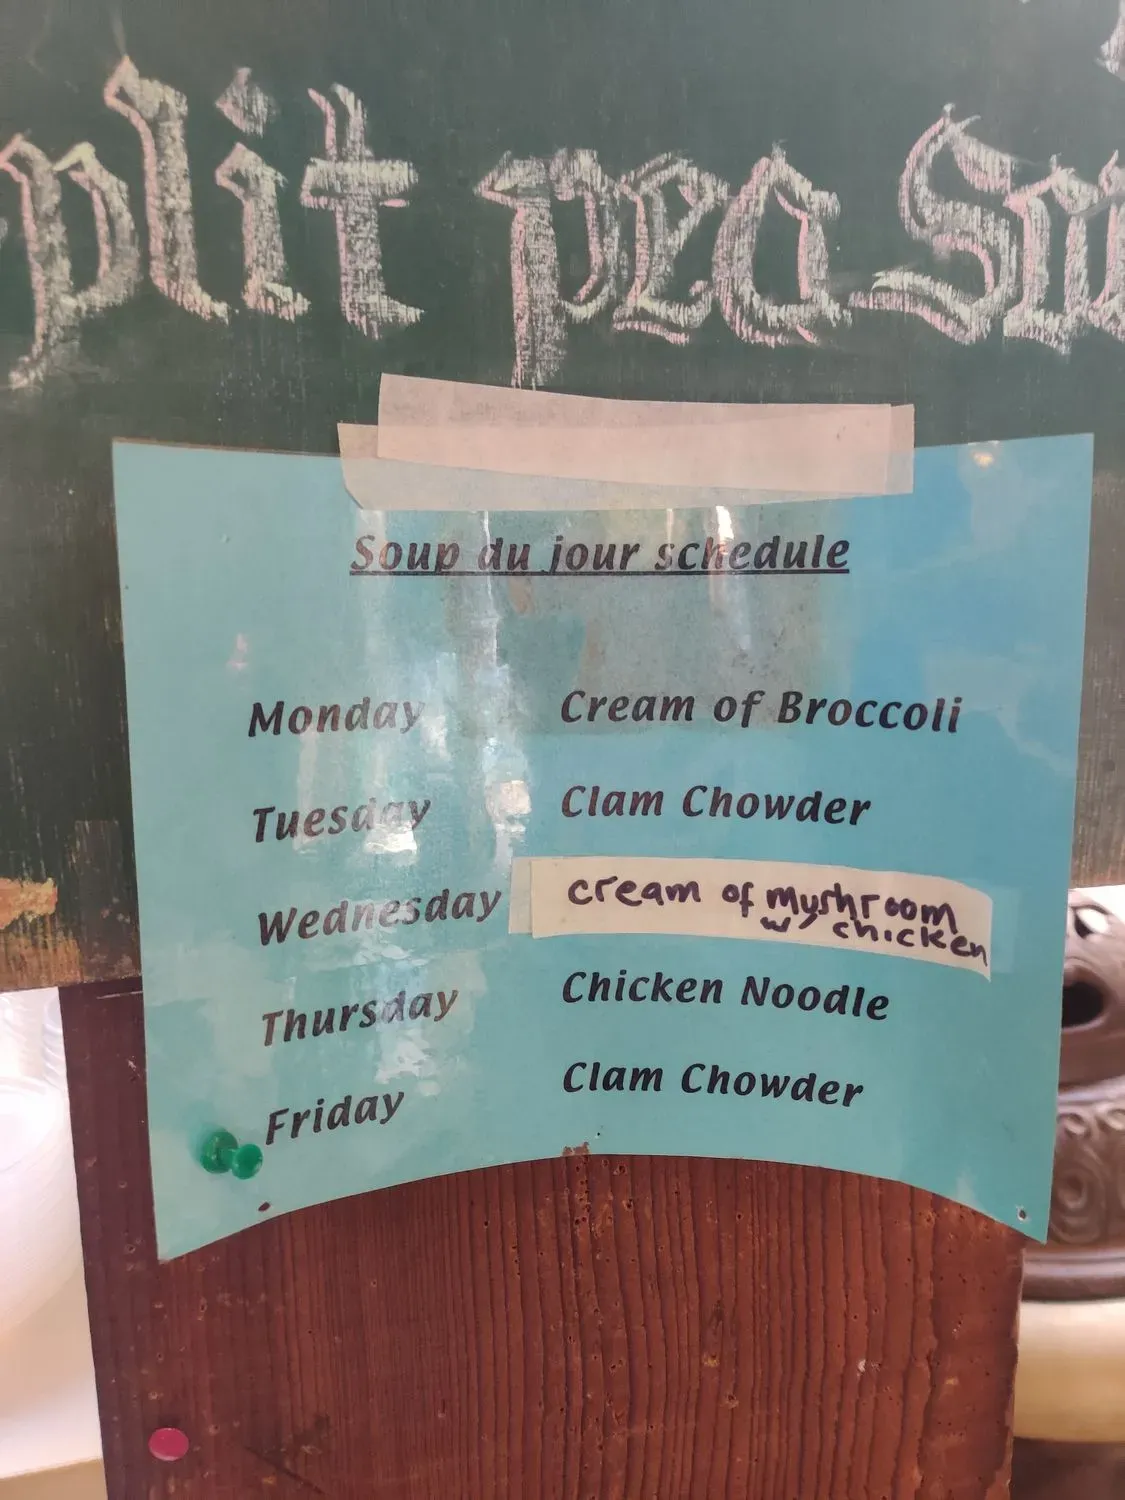 split pea Sou
Soup du jour schedule
Monday Cream of Broccoli
Tuesday Clam Chowder
Wednesday cream of mushroom
w/ chicken
Thursday Chicken Noodle
Friday Clam Chowder